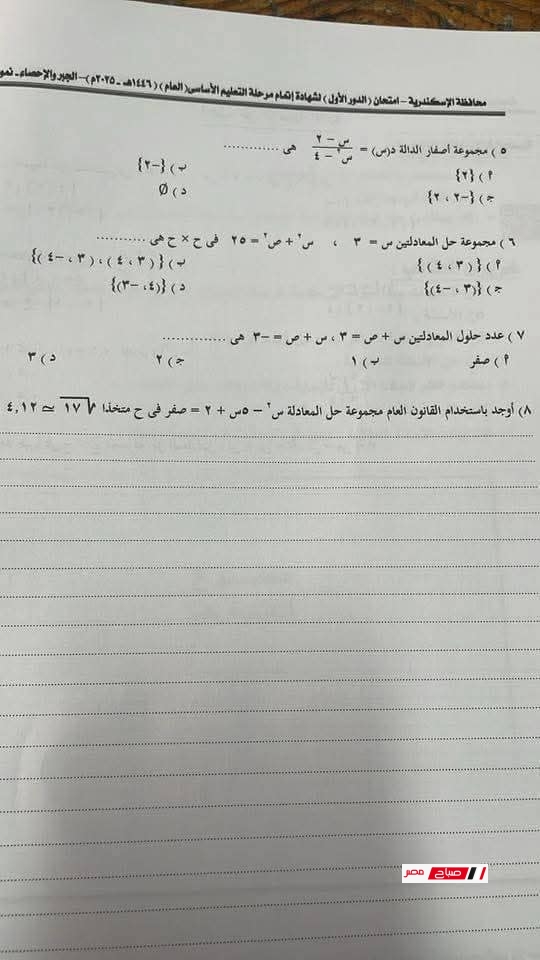 محافظة الإسكندرية – امتحان ( الدور الأول ) لشهادة إتمام مرحلة التعليم الأساسى ( العام ) ( ١٤٤٦هـ - ٢٠٢٥م ) – الجبر والإحصاء - نمو
٥ ) مجموعة أصفار الدالة د(س) = (س – ٢) / (س٢ – ٤) هى ............
٢ ) {٢} ب ) {-٢}
جـ ) {-٢ ، ٢} د ) Ø
٦ ) مجموعة حل المعادلتين س = ٣ ، س٢ + ص٢ = ٢٥ فى ح × ح هى ...........
٢ ) { ( ٣ ، ٤ ) } ب ) { ( ٣ ، ٤ ) ، ( ٣ ، -٤ ) }
جـ ) {(٣ ، -٤)} د ) {(٤، -٣)}
٧ ) عدد حلول المعادلتين س + ص = ٣ ، س + ص = -٣ هى .............
٢ ) صفر ب ) ١ جـ ) ٢ د ) ٣
٨) أوجد باستخدام القانون العام مجموعة حل المعادلة س٢ – ٥س + ٢ = صفر فى ح متخذا √١٧ ≃ ٤,١٢
صباح مصر